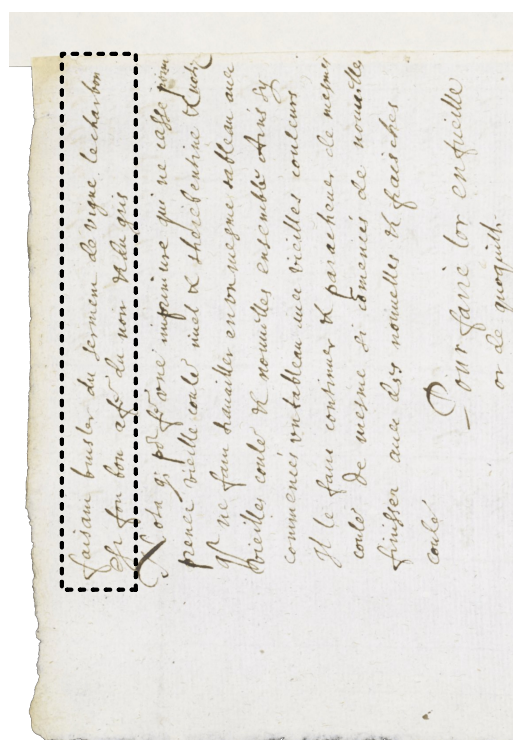 faisant brusler du serment de vigne le charbon
est fort bon a fe du noir & du gris
Nota q; po fe une imprimure qui ne casse
prenez vieille coule miel & therebentine
Il ne faut travailler en un mesme tableau avec
vieilles coule & nouvelles ensemble Ains si
commencés un tableau avec vieilles couleurs
Il le faut continuer & parachever de mesmes
coule de mesme si comencés de nouvelles
finisser avec des nouvelles & fraisches
coule
Pour faire lor en fueille
or de quoquill